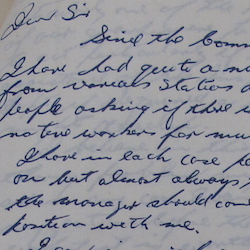 Dear Sir
Since the Comm
I have had quite a n
from various Station
people asking if there
native workers for mu
I have in each case
on but almost always
the manager should com
position with me.